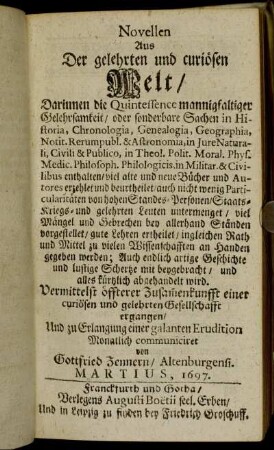 Novellen
Aus
Der gelehrten und curiösen
Welt/
Dariunen die Quintessence mannigfaltiger
Gelehrsamkeit/ oder sonderbare Sachen in Hi-
storia, Chronologia, Genealogia, Geographia,
Notit. Rerumpubl. & Astronomia, in Jure Natura-
li, Civili & Publico, in Theol. Polit. Moral. Phys.
Medic. Philosoph. Philologicis, in Militar. & Civi-
libus enthalten/ viel alte und neue Bücher und Au-
tores erzehlet und beurtheilet/ auch nicht wenig Parti-
cularitäten von hohen Standes-Personen/ Staats-
Kriegs- und gelehrten Leuten untermenget/ viel
Mängel und Gebrechen bey allerhand Ständen
vorgestellet/ gute Lehren ertheilet/ ingleichen Rath
und Mittel zu vielen Wissenschafften an Handen
gegeben werden; Auch endlich artige Geschichte
und lustige Schertze mit beygebracht/ und
alles kürtzlich abgehandelt wird.
Vermittelst öffterer Zusamenkunfft einer
curiösen und gelehrten Gesellschafft
ergangen/
Und zu Erlangung einer galanten Erudition
Monatlich communiciret
von
Gottfried Zennern/ Altenburgens.
MARTIUS, 1697.
Franckfurth und Gotha/
Verlegens Augusti Boëtii seel. Erben/
Und in Leipzig zu finden bey Friedrich Groschuff.